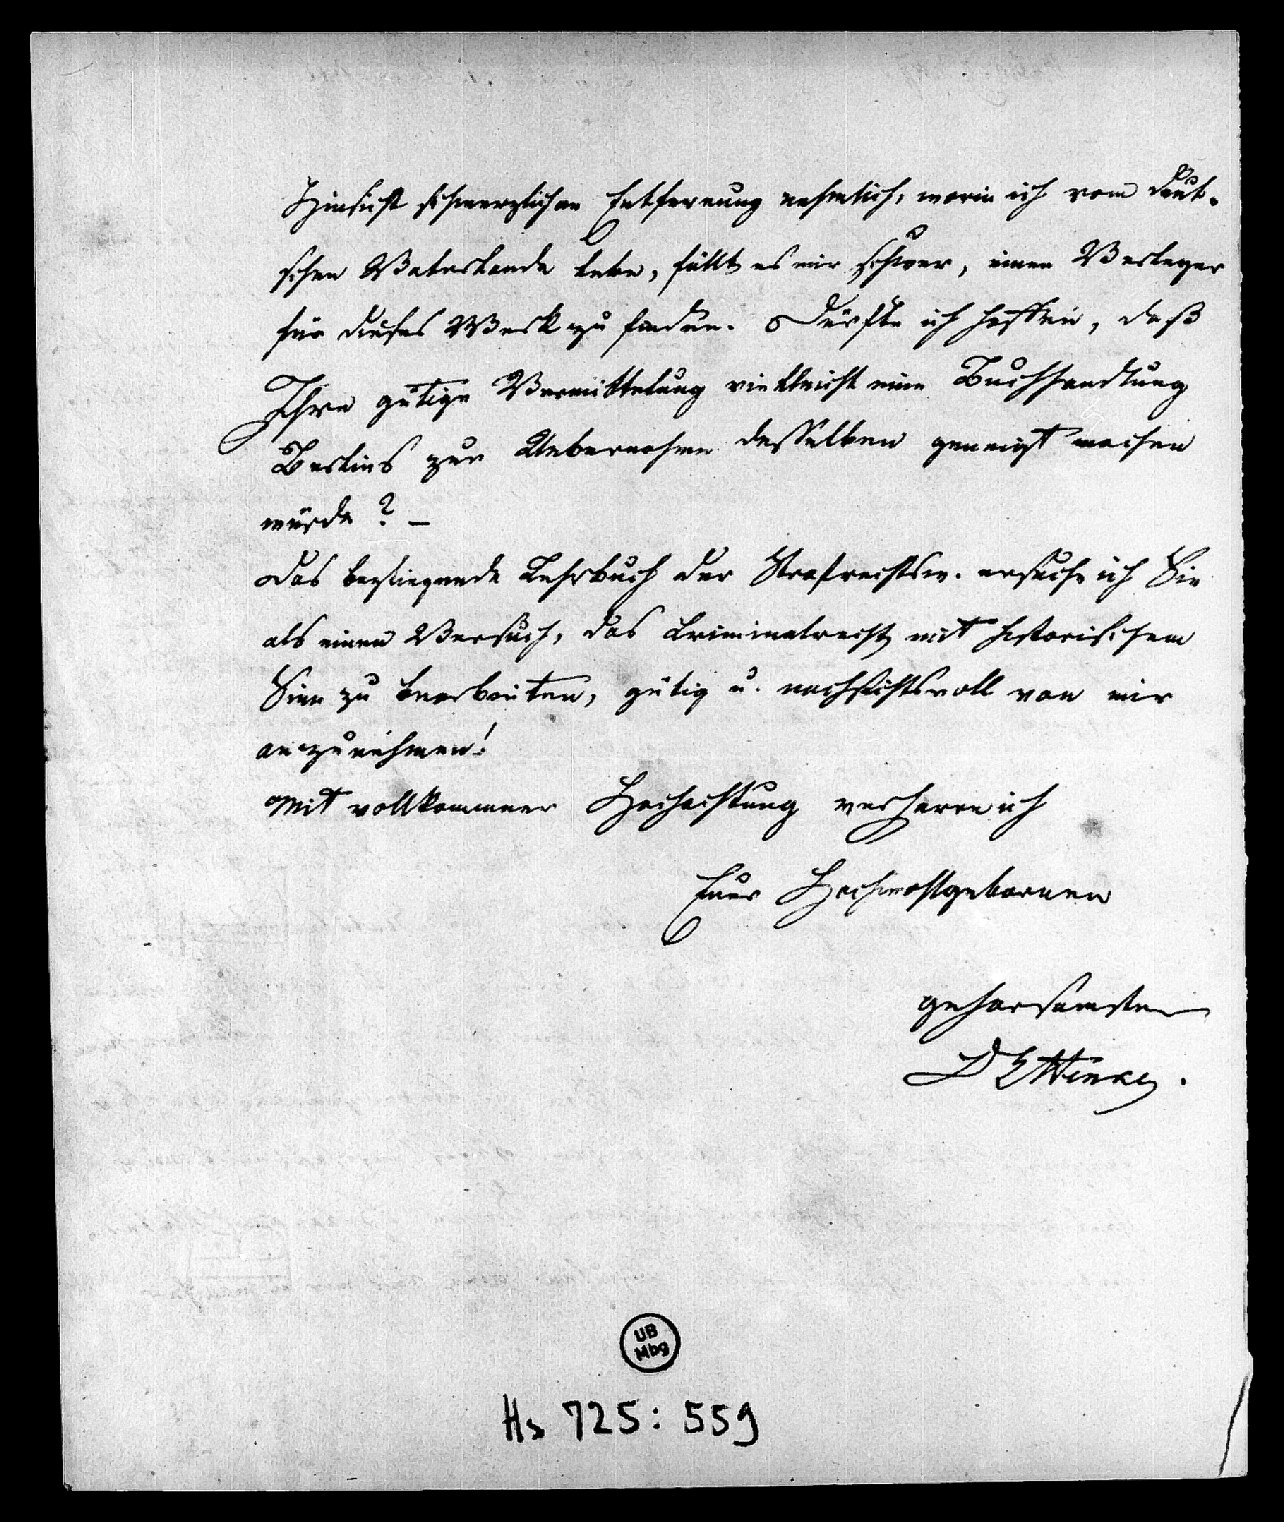 Hinsicht schmerzlichen Entfernung nehmlich, worin ich vom deut-
schen Vaterlande lebe, fällt es mir schwer, einen Verleger
für dieses Werk zu finden. Dürfte ich hoffen, daß
Ihre gütige Vermittelung vielleicht eine Buchhandlung
Berlins zur Uebernahme desselben geneigt machen
würde? –
Das beyliegende Lehrbuch der Strafrechtsw. ersuche ich Sie
als einen Versuch, das Criminalrecht mit historischem
Sinn zu bearbeiten, gütig u. nachsichtsvoll von mir
anzunehmen!
Mit vollkommner Hochachtung verharre ich
Euer Hochwohlgebornen
gehorsamster
D E Henke.
UB
Mbg
Hs 725: 559